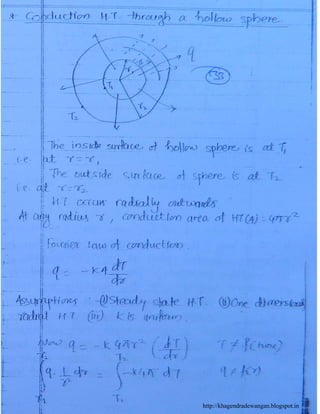 * Conduction H.T. through a hollow sphere
q
33
r₁
T₁
r₂
T₂
The inside surface of hollow sphere is at T₁
i.e. at r = r₁
The outside surface of sphere is at T₂
i.e. at r = r₂.
H.T. occurs radially outwards
At any radius r, conduction area of HT (A) = 4πr²
Fourier law of conduction.
q = -kA dT/dr
Assumptions :- (i) Steady state H.T. (ii) One dimensional
radial H.T (iii) K is uniform.
Now q = -k 4πr² (dT/dr) T ≠ f(time)
∫ q. 1/r² dr = ∫ -k4π dT q ≠ f(r)
r₁ T₁
http://khagendradewangan.blogspot.in